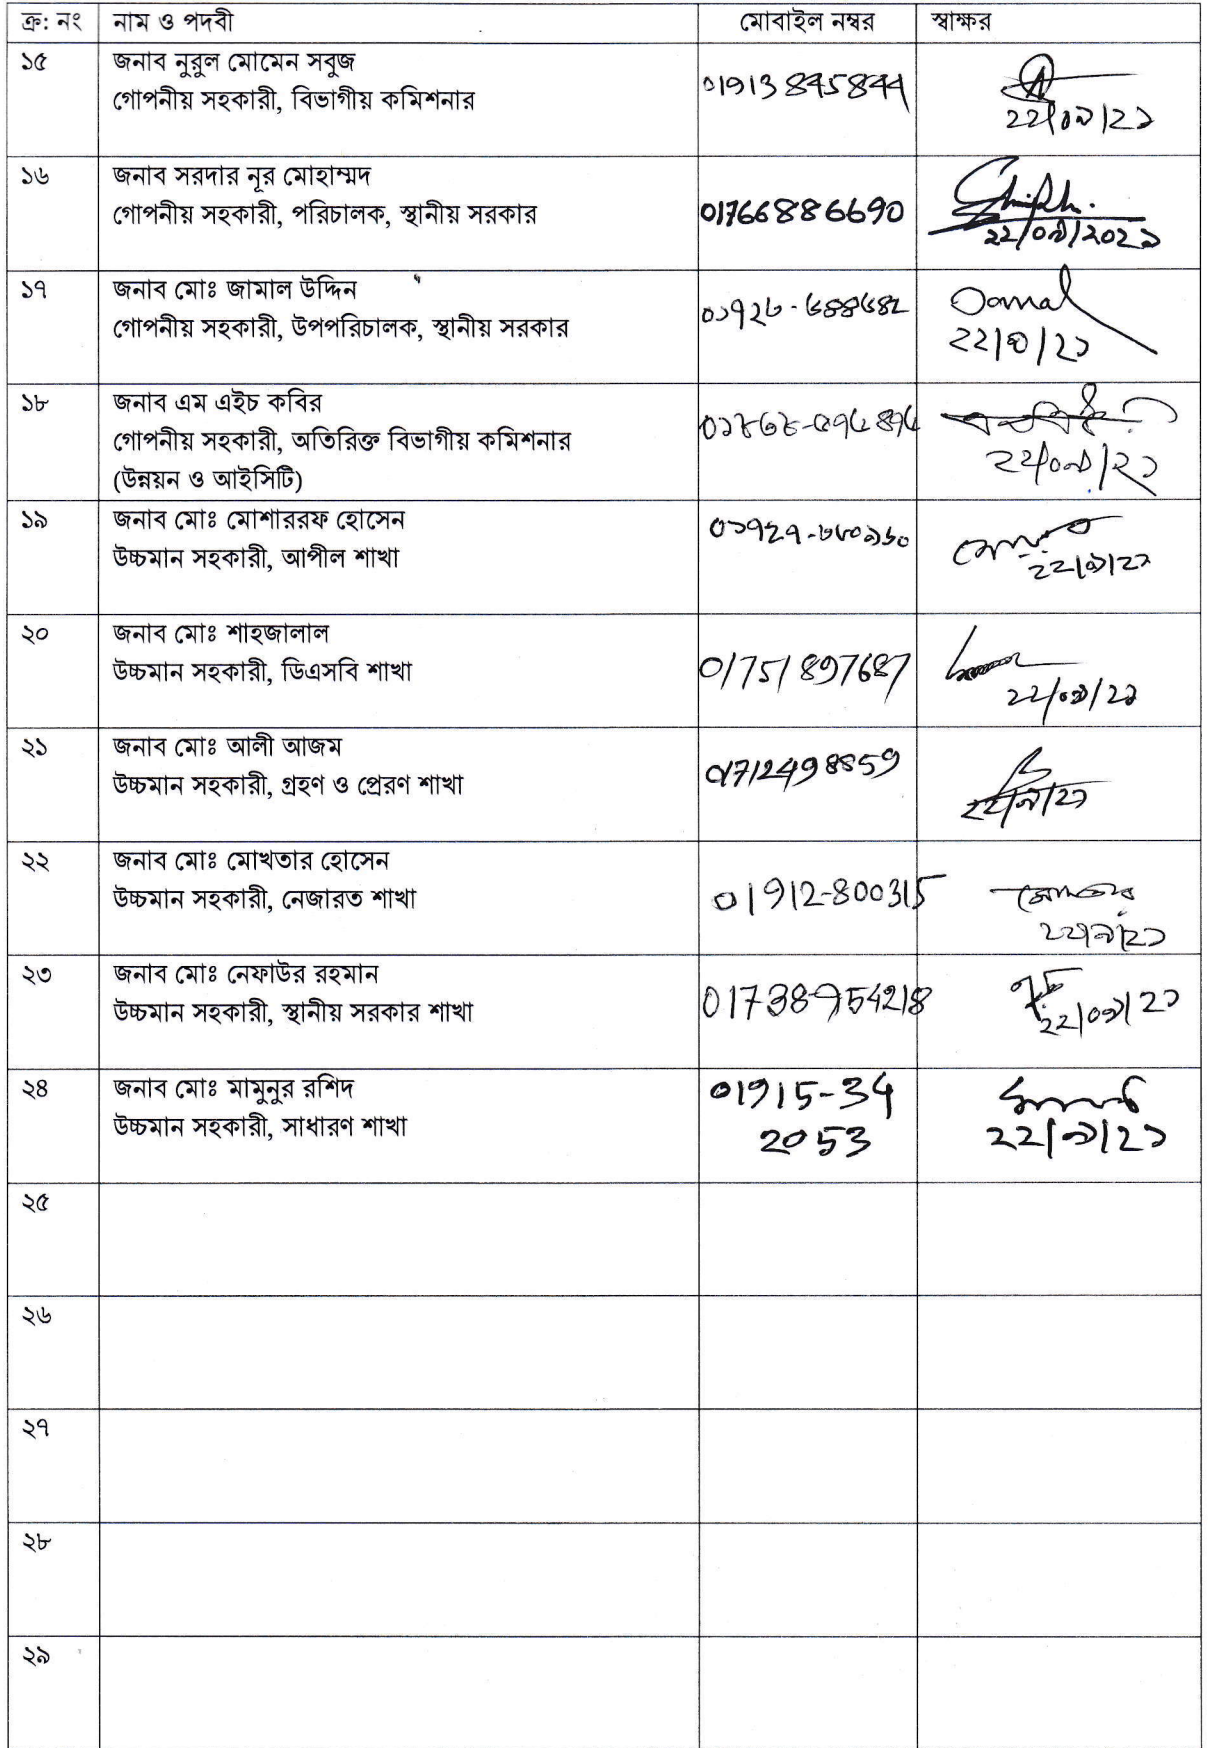 ক্র: নং নাম ও পদবী মোবাইল নম্বর স্বাক্ষর
১৫ জনাব নুরুল মোমেন সবুজ
গোপনীয় সহকারী, বিভাগীয় কমিশনার 01913845844
22/০৯/2১
১৬ জনাব সরদার নূর মোহাম্মদ
গোপনীয় সহকারী, পরিচালক, স্থানীয় সরকার 01766886690
২২/০৯/২০২১
১৭ জনাব মোঃ জামাল উদ্দিন
গোপনীয় সহকারী, উপপরিচালক, স্থানীয় সরকার
১৮ জনাব এম এইচ কবির
গোপনীয় সহকারী, অতিরিক্ত বিভাগীয় কমিশনার
(উন্নয়ন ও আইসিটি) 22/০৯/২১
১৯ জনাব মোঃ মোশাররফ হোসেন
উচ্চমান সহকারী, আপীল শাখা 22/০৯/2১
২০ জনাব মোঃ শাহজালাল
উচ্চমান সহকারী, ডিএসবি শাখা 01751897687
22/০৯/2১
২১ জনাব মোঃ আলী আজম
উচ্চমান সহকারী, গ্রহণ ও প্রেরণ শাখা 01712498859
22/৯/2১
২২ জনাব মোঃ মোখতার হোসেন
উচ্চমান সহকারী, নেজারত শাখা 01912-800315
22/৯/2১
২৩ জনাব মোঃ নেফাউর রহমান
উচ্চমান সহকারী, স্থানীয় সরকার শাখা 01738-954218
22/০৯/2১
২৪ জনাব মোঃ মামুনুর রশিদ 01915-34
উচ্চমান সহকারী, সাধারণ শাখা 2053 22/৯/2১
২৫
২৬
২৭
২৮
২৯